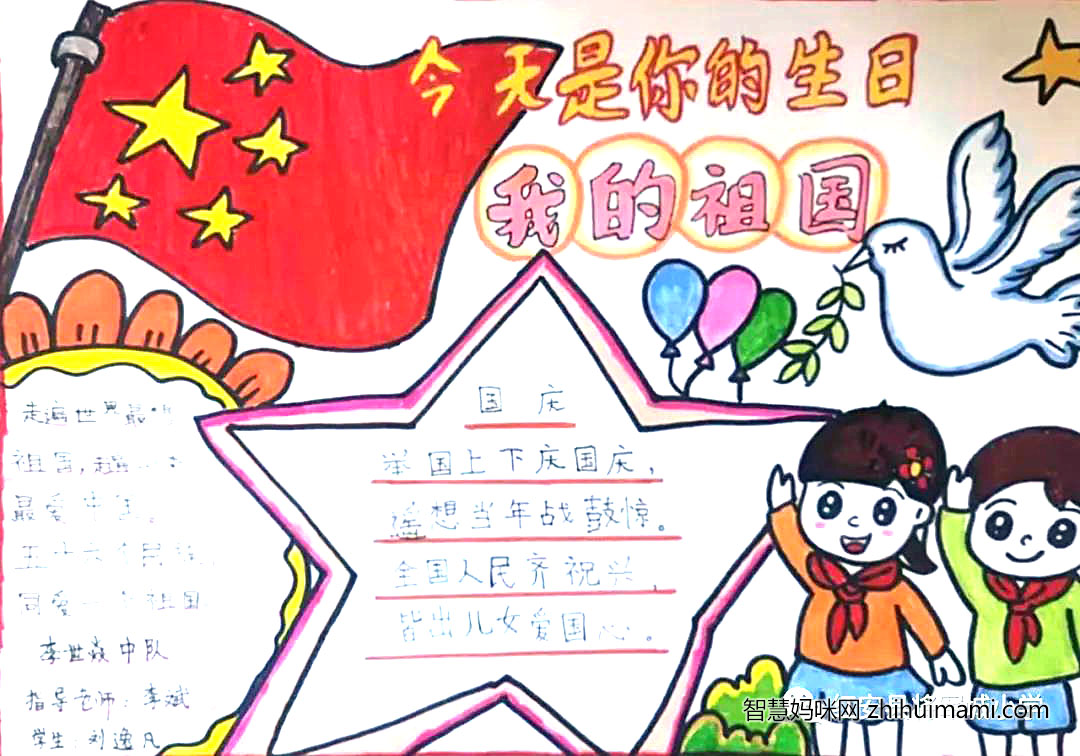 今天是你的生日
我的祖国
国庆
举国上下庆国庆，
遥想当年战鼓惊。
全国人民齐祝兴，
皆出儿女爱国心。
走遍世界最
祖国，
最爱中
五十六个民族，
同爱一个祖国
李世焱中队
指导老师：李斌
学生：刘逸凡
智慧妈咪网 zhihuimami.com